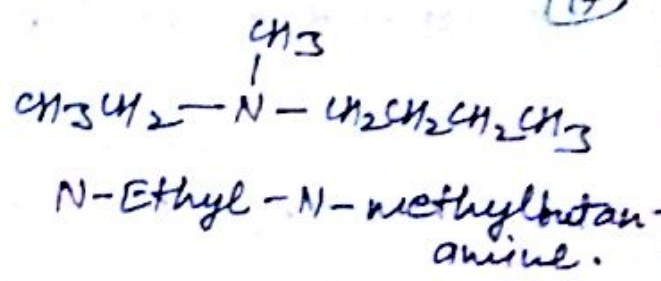 CH3
CH3CH2—N—CH2CH2CH2CH3
N-Ethyl-N-methylbutan-
amine.